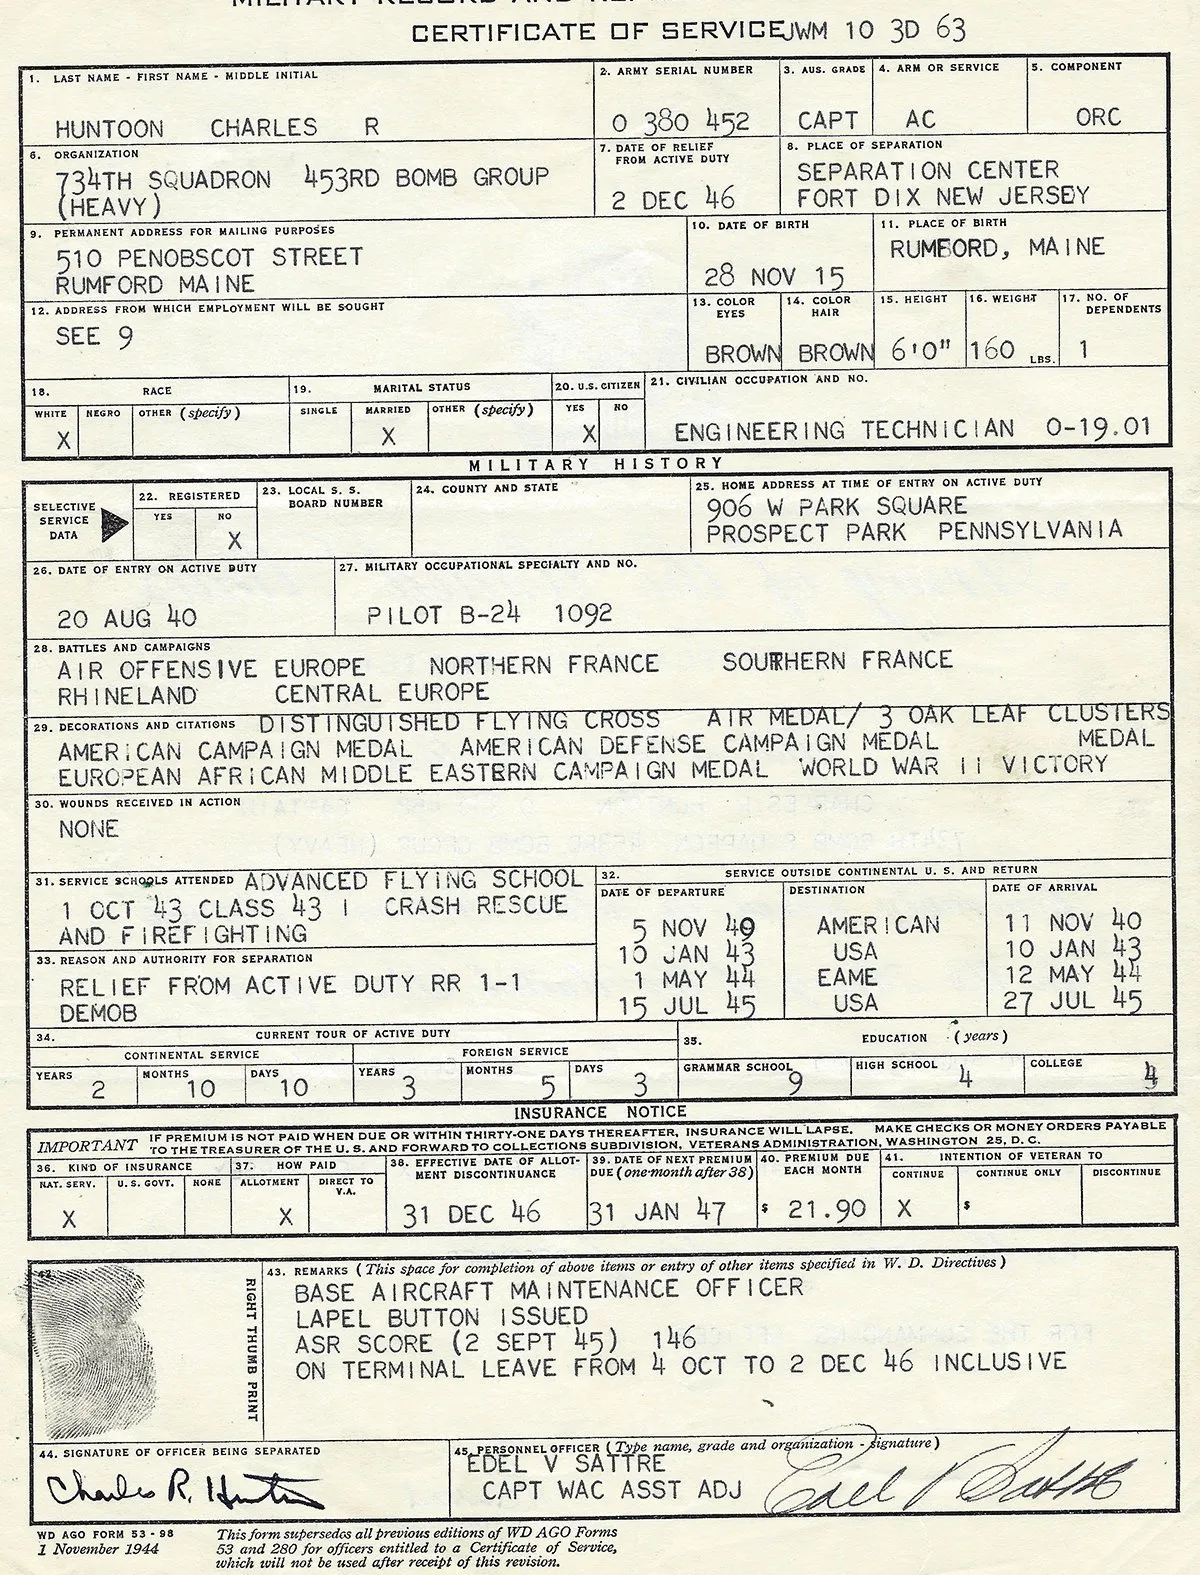 CERTIFICATE OF SERVICE JWM 10 3D 63
1. LAST NAME - FIRST NAME - MIDDLE INITIAL
HUNTOON CHARLES R
2. ARMY SERIAL NUMBER
0 380 452
3. AUS. GRADE
CAPT
4. ARM OR SERVICE
AC
5. COMPONENT
ORC
6. ORGANIZATION
734TH SQUADRON 453RD BOMB GROUP
(HEAVY)
7. DATE OF RELIEF
FROM ACTIVE DUTY
2 DEC 46
8. PLACE OF SEPARATION
SEPARATION CENTER
FORT DIX NEW JERSEY
9. PERMANENT ADDRESS FOR MAILING PURPOSES
510 PENOBSCOT STREET
RUMFORD MAINE
10. DATE OF BIRTH
28 NOV 15
11. PLACE OF BIRTH
RUMFORD, MAINE
12. ADDRESS FROM WHICH EMPLOYMENT WILL BE SOUGHT
SEE 9
13. COLOR
EYES
BROWN
14. COLOR
HAIR
BROWN
15. HEIGHT
6'0"
16. WEIGHT
160 LBS.
17. NO. OF
DEPENDENTS
1
18. RACE
WHITE NEGRO OTHER (specify)
X
19. MARITAL STATUS
SINGLE MARRIED OTHER (specify)
X
20. U.S. CITIZEN
YES NO
X
21. CIVILIAN OCCUPATION AND NO.
ENGINEERING TECHNICIAN 0-19.01
MILITARY HISTORY
SELECTIVE
SERVICE
DATA
22. REGISTERED
YES NO
X
23. LOCAL S. S.
BOARD NUMBER
24. COUNTY AND STATE
25. HOME ADDRESS AT TIME OF ENTRY ON ACTIVE DUTY
906 W PARK SQUARE
PROSPECT PARK PENNSYLVANIA
26. DATE OF ENTRY ON ACTIVE DUTY
20 AUG 40
27. MILITARY OCCUPATIONAL SPECIALTY AND NO.
PILOT B-24 1092
28. BATTLES AND CAMPAIGNS
AIR OFFENSIVE EUROPE NORTHERN FRANCE SOUTHERN FRANCE
RHINELAND CENTRAL EUROPE
29. DECORATIONS AND CITATIONS DISTINGUISHED FLYING CROSS AIR MEDAL/ 3 OAK LEAF CLUSTERS
AMERICAN CAMPAIGN MEDAL AMERICAN DEFENSE CAMPAIGN MEDAL MEDAL
EUROPEAN AFRICAN MIDDLE EASTERN CAMPAIGN MEDAL WORLD WAR II VICTORY
30. WOUNDS RECEIVED IN ACTION
NONE
31. SERVICE SCHOOLS ATTENDED ADVANCED FLYING SCHOOL
1 OCT 43 CLASS 43 I CRASH RESCUE
AND FIREFIGHTING
32. SERVICE OUTSIDE CONTINENTAL U. S. AND RETURN
DATE OF DEPARTURE DESTINATION DATE OF ARRIVAL
5 NOV 40 AMERICAN 11 NOV 40
10 JAN 43 USA 10 JAN 43
1 MAY 44 EAME 12 MAY 44
15 JUL 45 USA 27 JUL 45
33. REASON AND AUTHORITY FOR SEPARATION
RELIEF FROM ACTIVE DUTY RR 1-1
DEMOB
34. CURRENT TOUR OF ACTIVE DUTY
CONTINENTAL SERVICE FOREIGN SERVICE
YEARS MONTHS DAYS YEARS MONTHS DAYS
2 10 10 3 5 3
35. EDUCATION (years)
GRAMMAR SCHOOL HIGH SCHOOL COLLEGE
9 4 4
INSURANCE NOTICE
IMPORTANT IF PREMIUM IS NOT PAID WHEN DUE OR WITHIN THIRTY-ONE DAYS THEREAFTER, INSURANCE WILL LAPSE. MAKE CHECKS OR MONEY ORDERS PAYABLE
TO THE TREASURER OF THE U. S. AND FORWARD TO COLLECTIONS SUBDIVISION, VETERANS ADMINISTRATION, WASHINGTON 25, D. C.
36. KIND OF INSURANCE
NAT. SERV. U. S. GOVT. NONE
X
37. HOW PAID
ALLOTMENT DIRECT TO
V.A.
X
38. EFFECTIVE DATE OF ALLOT-
MENT DISCONTINUANCE
31 DEC 46
39. DATE OF NEXT PREMIUM
DUE (one month after 38)
31 JAN 47
40. PREMIUM DUE
EACH MONTH
$ 21.90
41. INTENTION OF VETERAN TO
CONTINUE CONTINUE ONLY DISCONTINUE
X $
42.
RIGHT THUMB PRINT
43. REMARKS (This space for completion of above items or entry of other items specified in W. D. Directives)
BASE AIRCRAFT MAINTENANCE OFFICER
LAPEL BUTTON ISSUED
ASR SCORE (2 SEPT 45) 146
ON TERMINAL LEAVE FROM 4 OCT TO 2 DEC 46 INCLUSIVE
44. SIGNATURE OF OFFICER BEING SEPARATED
Charles R. Huntoon
45. PERSONNEL OFFICER (Type name, grade and organization - signature)
EDEL V SATTRE
CAPT WAC ASST ADJ
Edel V Sattre
WD AGO FORM 53 - 98
1 November 1944
This form supersedes all previous editions of WD AGO Forms
53 and 280 for officers entitled to a Certificate of Service,
which will not be used after receipt of this revision.